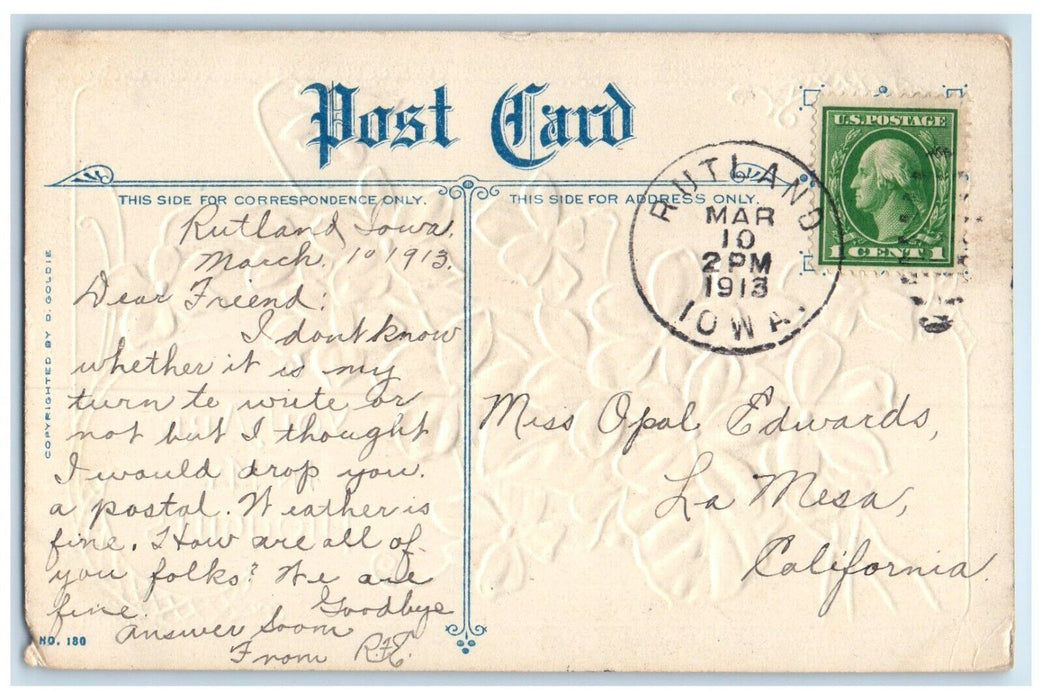 Post Card
U.S. POSTAGE
1 CENT 1
RUTLAND
MAR
10
2 PM
1913
IOWA.
THIS SIDE FOR CORRESPONDENCE ONLY.
THIS SIDE FOR ADDRESS ONLY.
COPYRIGHTED BY D. GOLDIE
Rutland, Iowa,
March, 10 1913.
Dear Friend:
I dont know
whether it is my
turn to write or
not but I thought
I would drop you
a postal. Weather is
fine. How are all of
you folks? We are
fine. Goodbye
answer soon
From
NO. 180
Miss Opal Edwards,
La Mesa,
California.